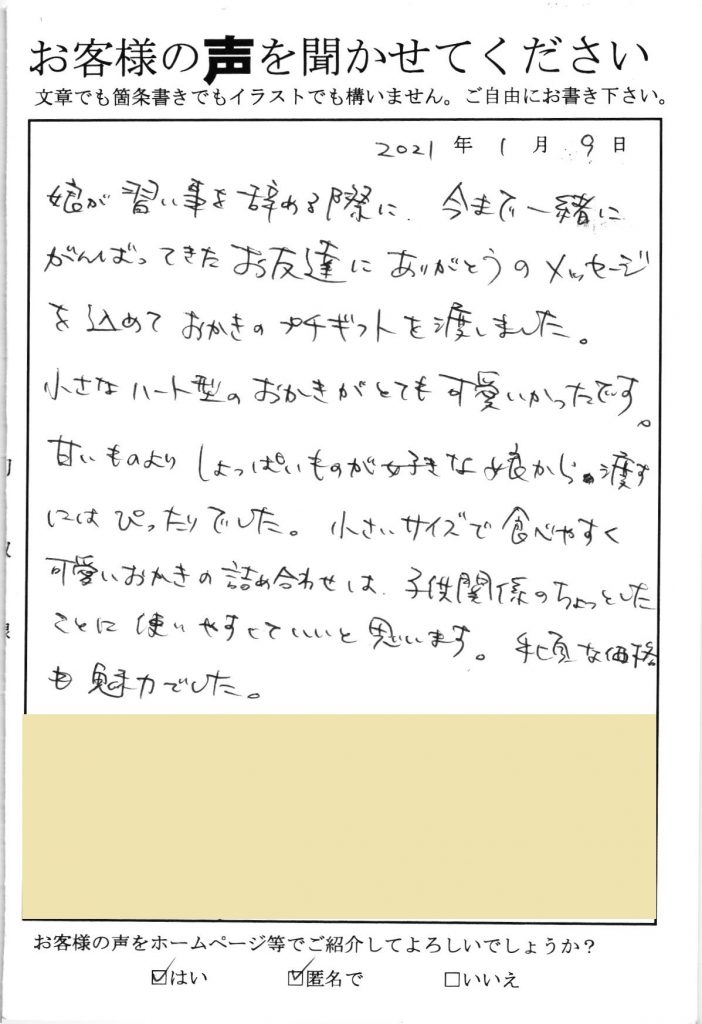 お客様の声を聞かせてください
文章でも箇条書きでもイラストでも構いません。ご自由にお書き下さい。
2021 年 1 月 9 日
娘が習い事を辞める際に、今まで一緒に
がんばってきたお友達にありがとうのメッセージ
を込めておかきのプチギフトを渡しました。
小さなハート型のおかきがとても可愛いかったです。
甘いものよりしょっぱいものが好きな娘から渡す
にはぴったりでした。小さいサイズで食べやすく
可愛いおかきの詰め合わせは、子供関係のちょっとした
ことに使いやすくていいと思います。手頃な価格
も魅力でした。
お客様の声をホームページ等でご紹介してよろしいでしょうか？
☑はい ☑匿名で □いいえ